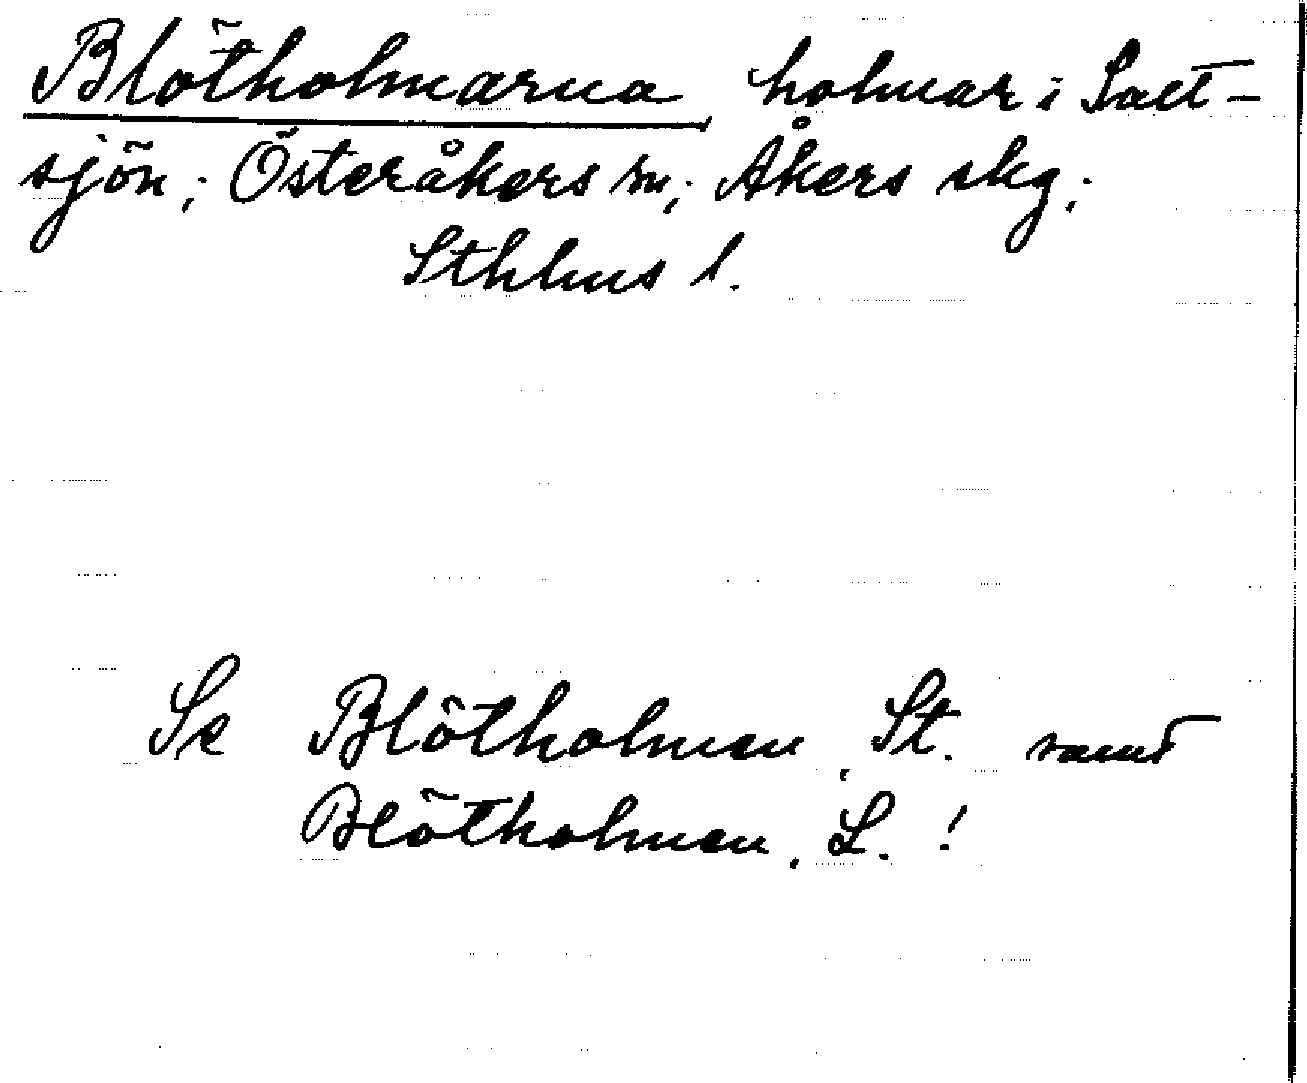 Blötholmarna holmar i Salt-
sjön; Österåkers sn; Åkers skg;
Sthlms l.
Se Blötholmen, St. samt
Blötholmen, L. !